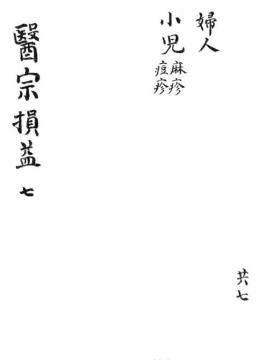 婦人
小児 麻疹
痘疹
醫宗損益 七
共七